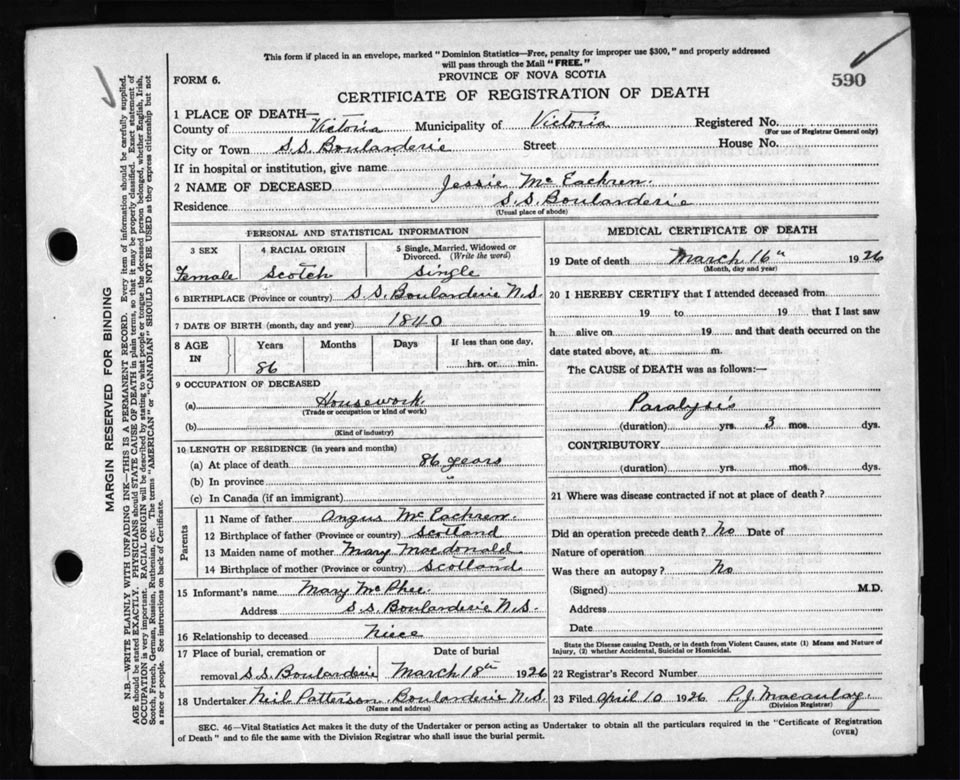 This form if placed in an envelope, marked "Dominion Statistics—Free, penalty for improper use $300," and properly addressed
will pass through the Mail "FREE."
FORM 6.
PROVINCE OF NOVA SCOTIA
590
CERTIFICATE OF REGISTRATION OF DEATH
1 PLACE OF DEATH—
County of Victoria Municipality of Victoria Registered No.
(For use of Registrar General only)
City or Town S.S. Boularderie Street House No.
If in hospital or institution, give name
2 NAME OF DECEASED Jessie McEachren.
Residence S.S. Boularderie
(Usual place of abode)
PERSONAL AND STATISTICAL INFORMATION
3 SEX 4 RACIAL ORIGIN 5 Single, Married, Widowed or
Divorced. (Write the word)
Female Scotch Single
6 BIRTHPLACE (Province or country) S.S. Boularderie N.S.
7 DATE OF BIRTH (month, day and year) 1840
8 AGE IN Years Months Days If less than one day,
86 hrs. or min.
9 OCCUPATION OF DECEASED
(a) Housework
(Trade or occupation or kind of work)
(b)
(Kind of industry)
10 LENGTH OF RESIDENCE (in years and months)
(a) At place of death 86 years
(b) In province "
(c) In Canada (if an immigrant)
Parents
11 Name of father Angus McEachren.
12 Birthplace of father (Province or country) Scotland
13 Maiden name of mother Mary Macdonald
14 Birthplace of mother (Province or country) Scotland
15 Informant's name Mary McPhee
Address S.S. Boularderie N.S.
16 Relationship to deceased Niece
17 Place of burial, cremation or Date of burial
removal S.S. Boularderie March 18th 1926
18 Undertaker Neil Patterson, Boularderie N.S.
(Name and address)
MEDICAL CERTIFICATE OF DEATH
19 Date of death March 16th 1926
(Month, day and year)
20 I HEREBY CERTIFY that I attended deceased from
19 to 19 that I last saw
h alive on 19 and that death occurred on the
date stated above, at m.
The CAUSE of DEATH was as follows:—
Paralysis
(duration) yrs. 3 mos. dys.
CONTRIBUTORY
(duration) yrs. mos. dys.
21 Where was disease contracted if not at place of death?
Did an operation precede death? No Date of
Nature of operation
Was there an autopsy? No
(Signed) M.D.
Address
Date
State the Disease causing Death, or in death from Violent Causes, state (1) Means and Nature of
Injury, (2) whether Accidental, Suicidal or Homicidal.
22 Registrar's Record Number
23 Filed April 10 1926 P.J. Macaulay
(Division Registrar)
SEC. 46—Vital Statistics Act makes it the duty of the Undertaker or person acting as Undertaker to obtain all the particulars required in the "Certificate of Registration
of Death" and to file the same with the Division Registrar who shall issue the burial permit.
(OVER)
MARGIN RESERVED FOR BINDING
N.B.—WRITE PLAINLY WITH UNFADING INK—THIS IS A PERMANENT RECORD. Every item of information should be carefully supplied.
AGE should be stated EXACTLY. PHYSICIANS should STATE CAUSE OF DEATH in plain terms, so that it may be properly classified. Exact statement of
OCCUPATION is very important. RACIAL ORIGIN will be described by stating to what people or tongue the deceased person belonged, whether English, Irish,
Scotch, French, German, Russian, Ruthenian, etc. The terms "AMERICAN" or "CANADIAN" SHOULD NOT BE USED as they express citizenship but not
a race or people. See instructions on back of Certificate.